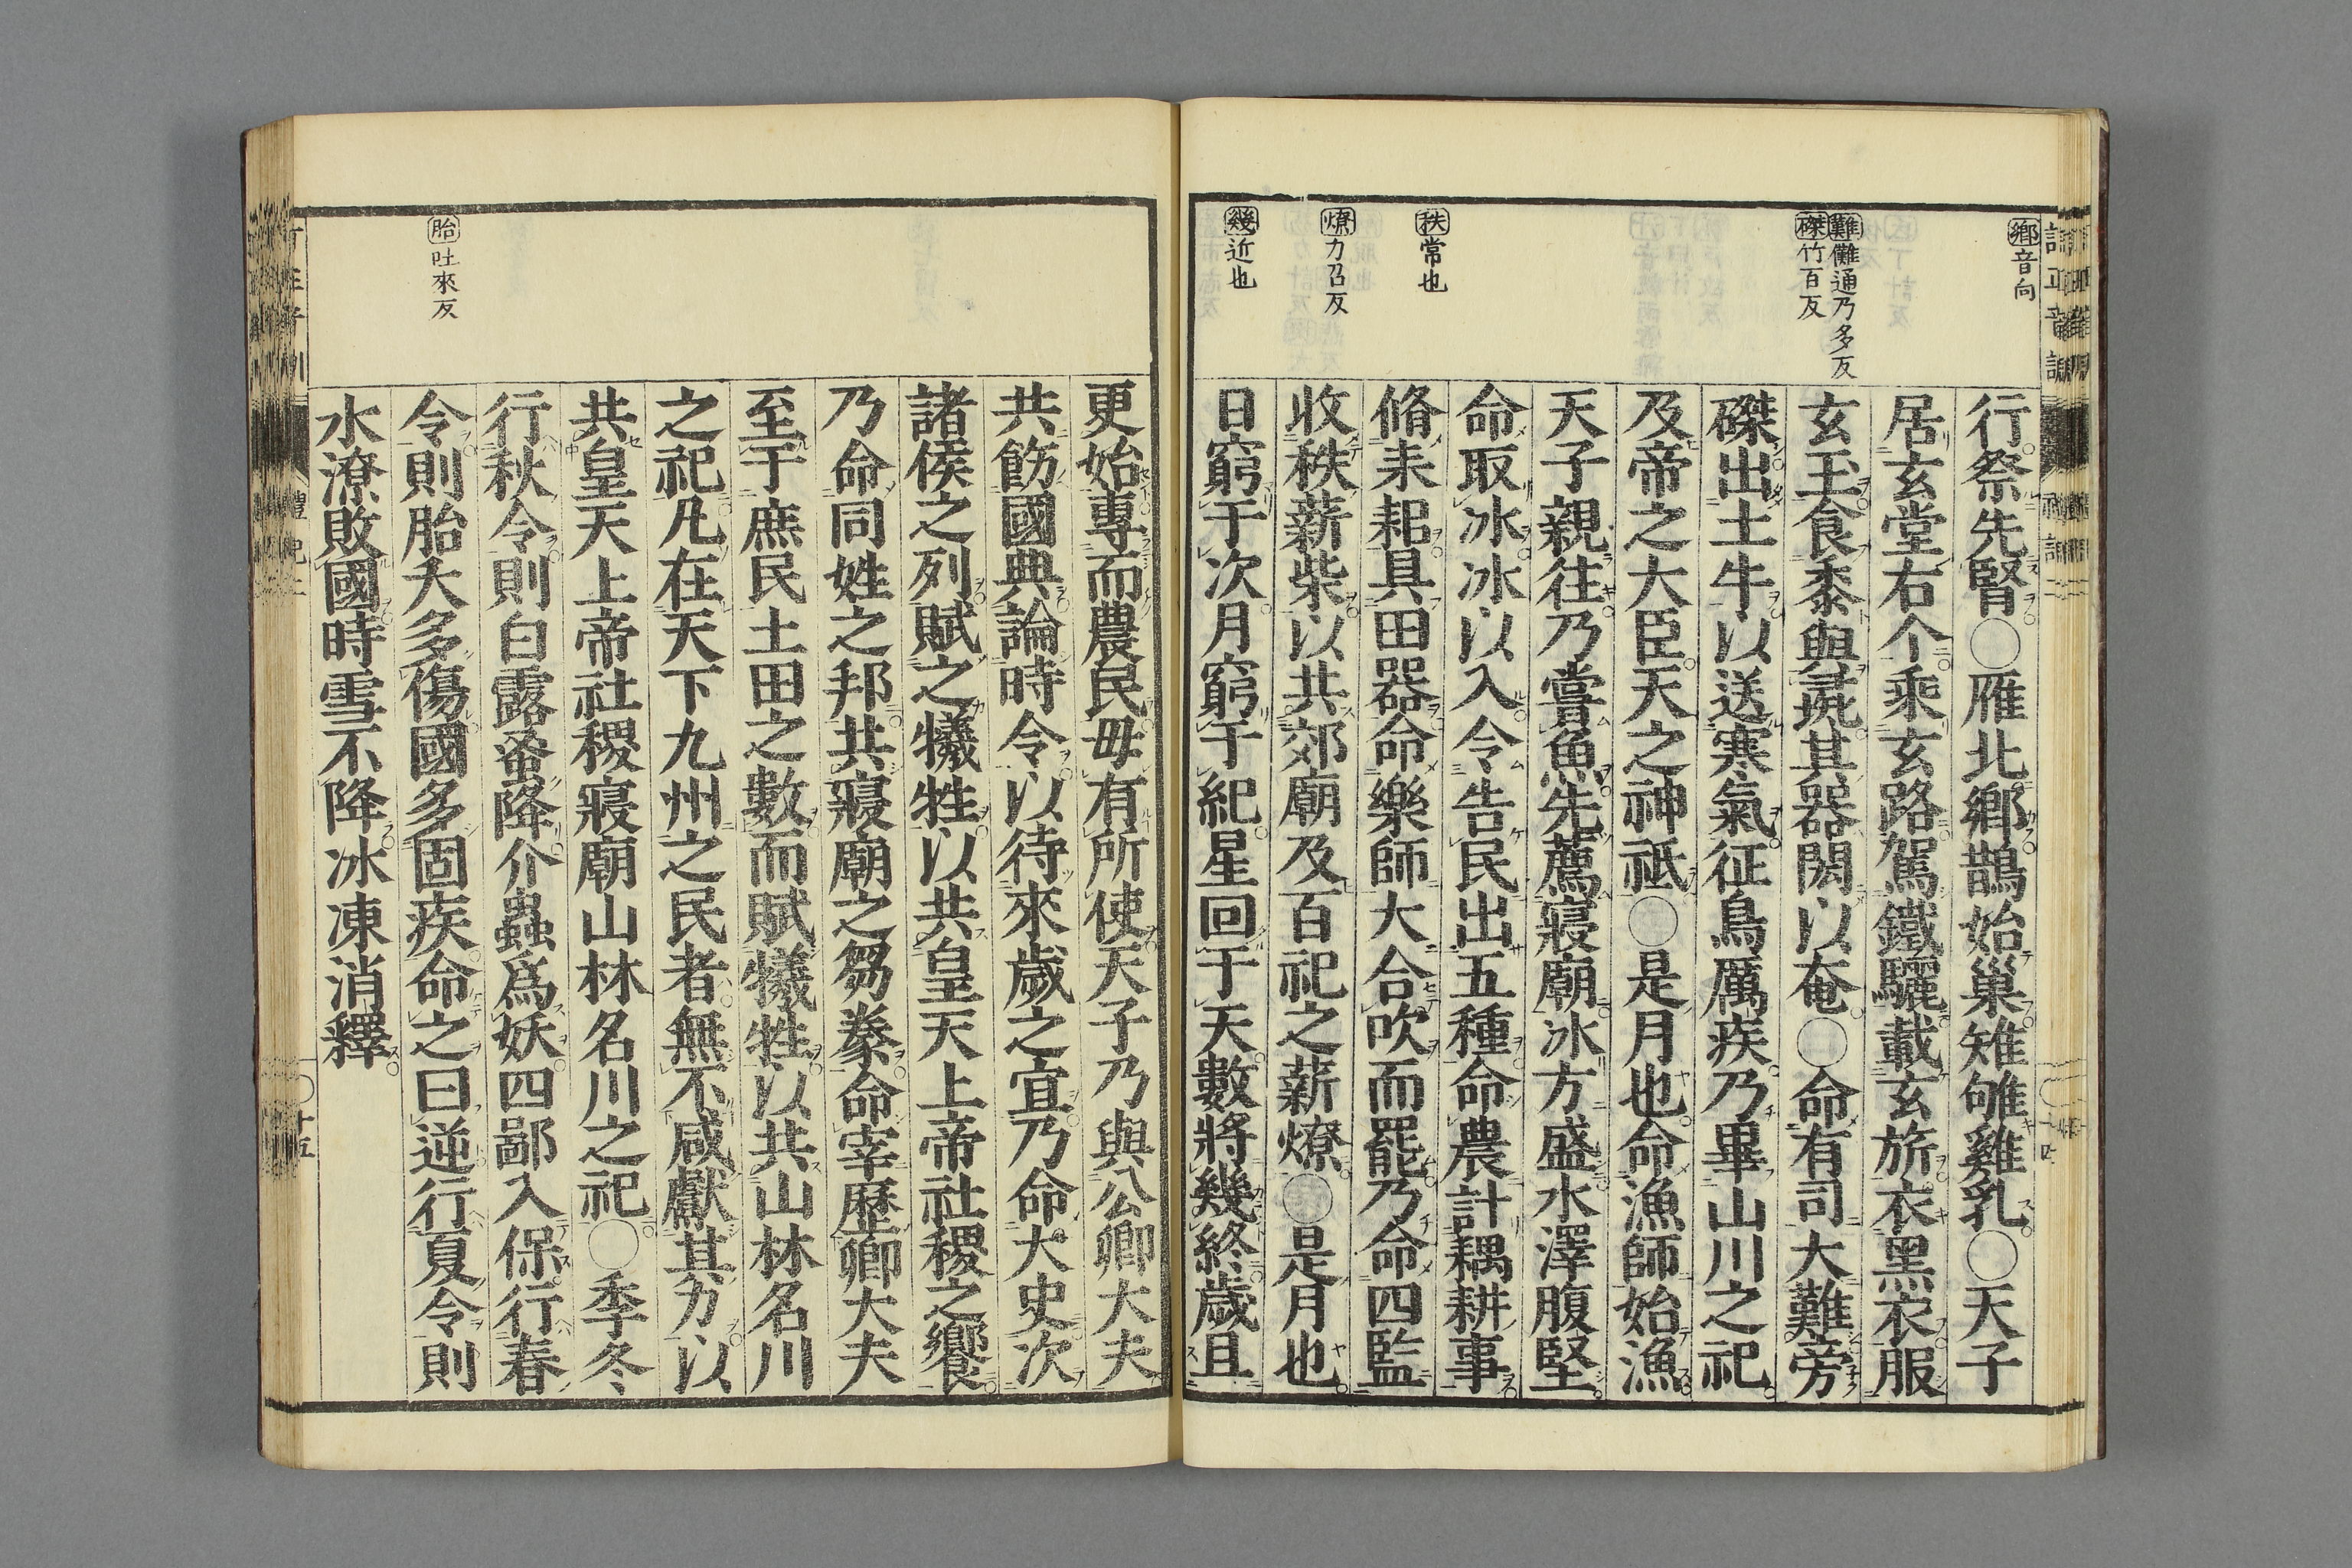 鄉音向
難儺通乃多反
磔竹百反
秩常也
燎力召反
幾近也
行祭先腎○雁北鄉鵲始巢雉雊雞乳○天子
居玄堂右个乘玄路駕鐵驪載玄旂衣黑衣服
玄玉食黍與彘其器閎以奄○命有司大難旁
磔出土牛以送寒氣征鳥厲疾乃畢山川之祀
及帝之大臣天之神祇○是月也命漁師始漁
天子親往乃嘗魚先薦寢廟冰方盛水澤腹堅
命取冰冰以入令告民出五種命農計耦耕事
脩耒耜具田器命樂師大合吹而罷乃命四監
收秩薪柴以共郊廟及百祀之薪燎○是月也
日窮于次月窮于紀星回于天數將幾終歲且
胎吐來反
更始專而農民毋有所使天子乃與公卿大夫
共飭國典論時令以待來歲之宜乃命大史次
諸侯之列賦之犧牲以共皇天上帝社稷之饗
乃命同姓之邦共寢廟之芻豢命宰歷卿大夫
至于庶民土田之數而賦犧牲以共山林名川
之祀凡在天下九州之民者無不咸獻其力以
共皇天上帝社稷寢廟山林名川之祀○季冬
行秋令則白露蚤降介蟲爲妖四鄙入保行春
令則胎夭多傷國多固疾命之曰逆行夏令則
水潦敗國時雪不降冰凍消釋